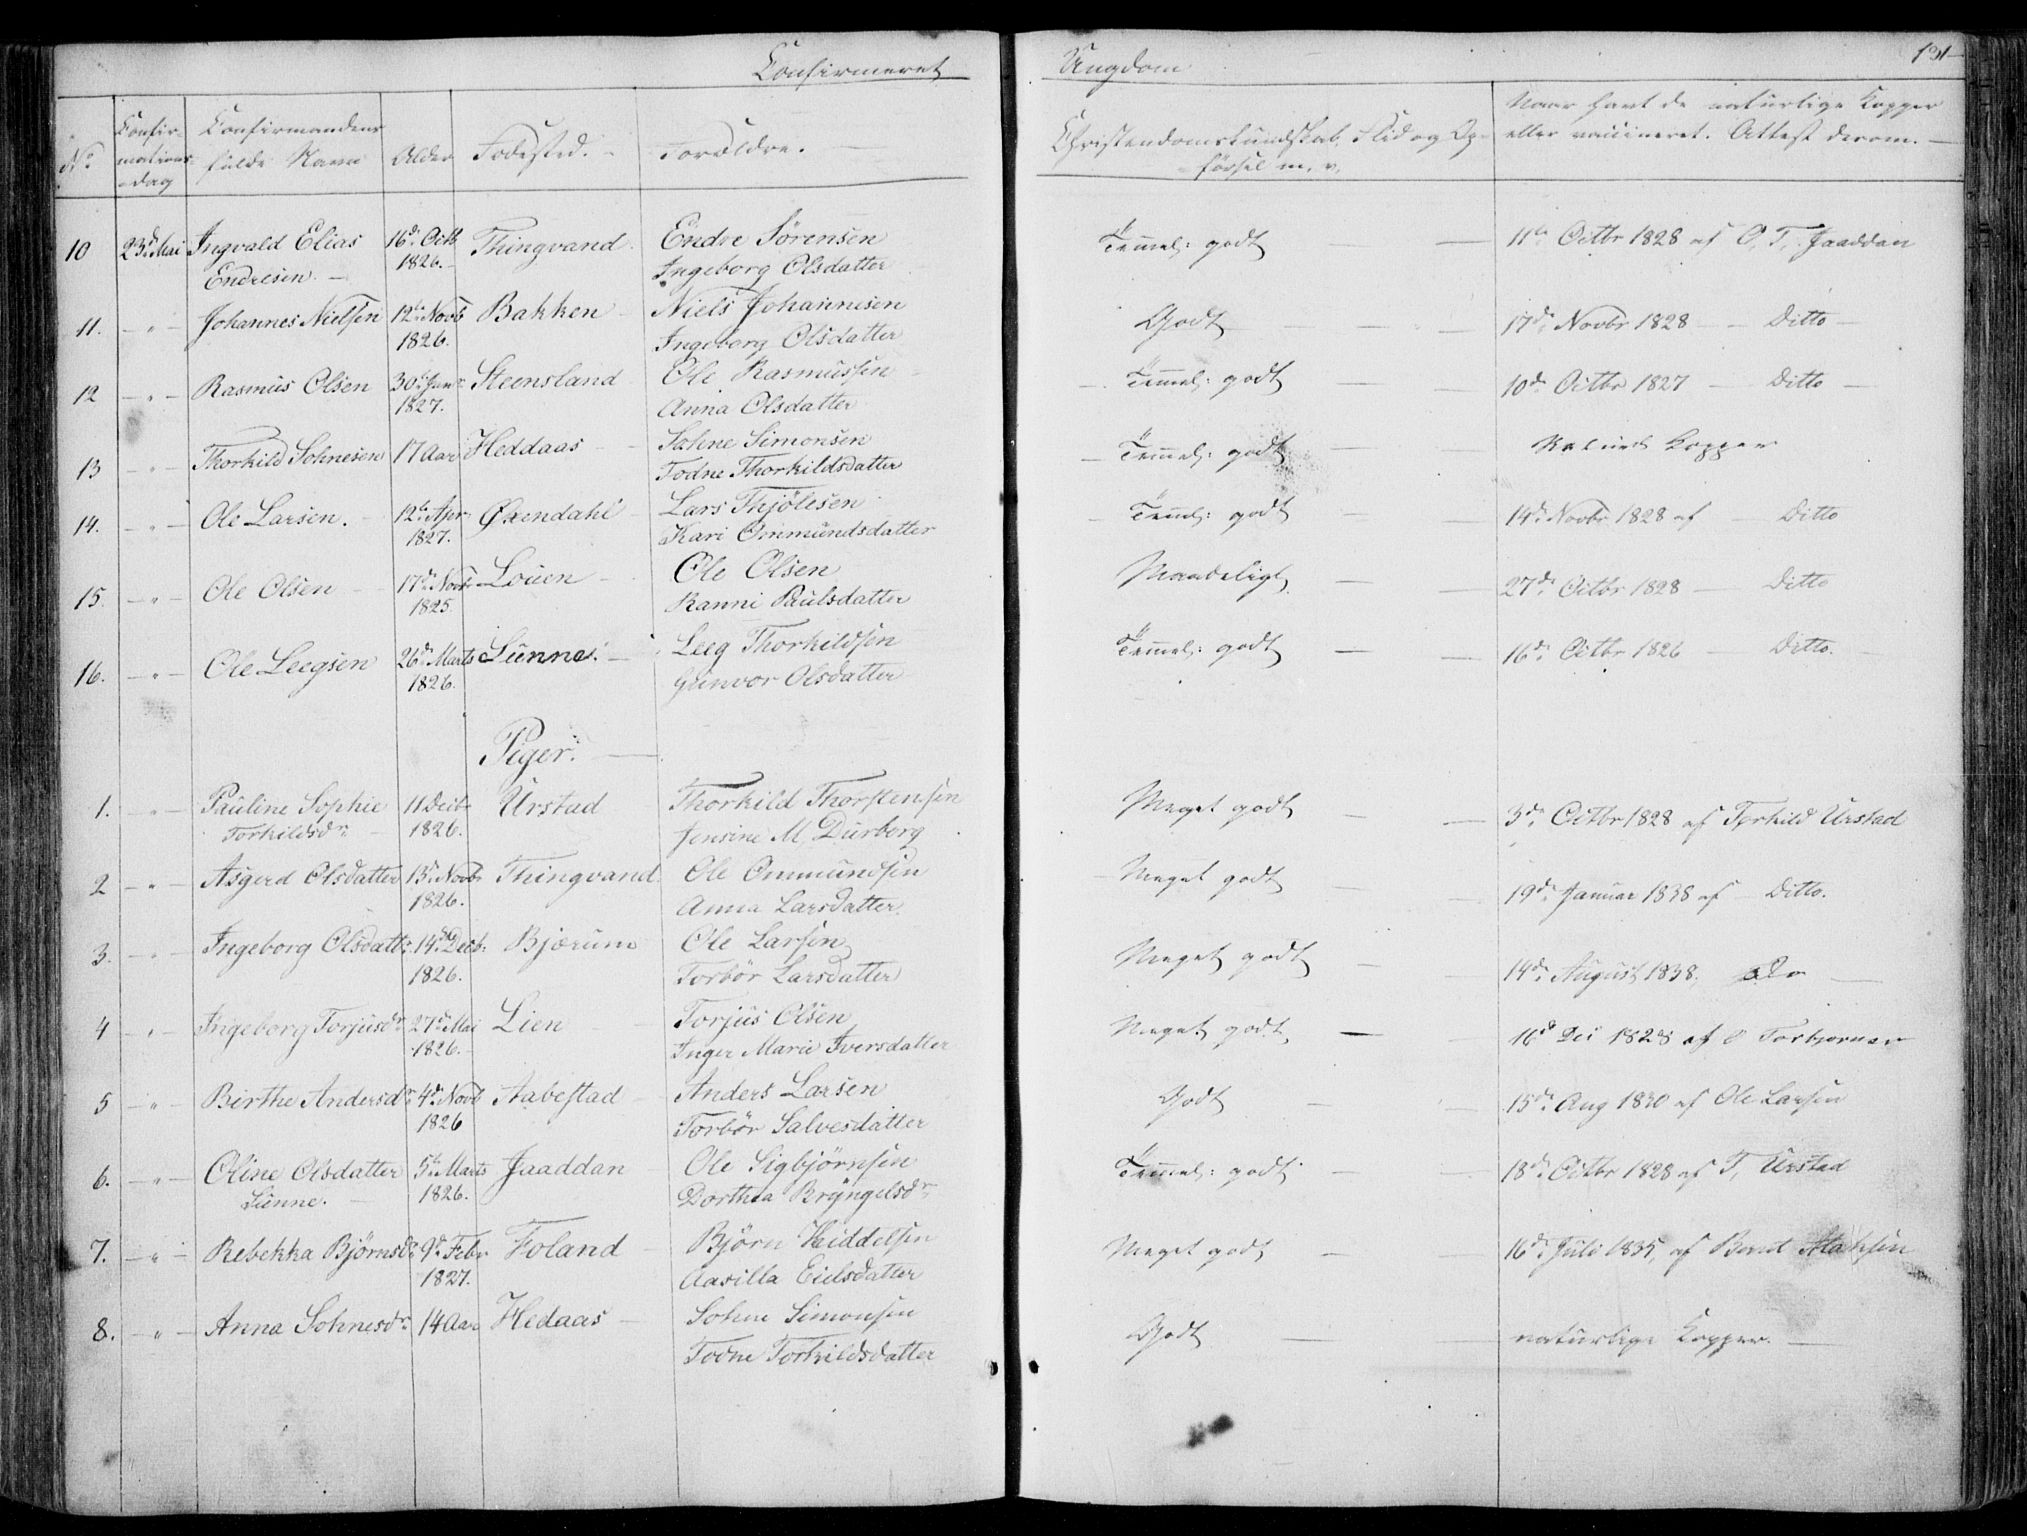 Confirmeret Ungdom 131
No Confirmationsdag Confirmandens fulde Navn Alder Fødested. Forældre. Christendomskundskab, Flid og Opførsel m. v. Naar havt de naturlige Kopper eller vaccineret. Attest derom.
10 23d Mai Ingvald Elias 16d Octb Thingvand. Endre Sørensen Temmel: godt 11te Octbr 1828 af O. T. Jaaddan
Endresen. 1826. Ingeborg Olsdatter
11. " Johannes Nielsen 12te Novb Bakken Niels Johannesen Godt 17de Novbr 1828 Ditto
1826. Ingeborg Olsdatter
12 " Rasmus Olsen 30te Janr Steensland Ole Rasmussen Temmel: godt 10de Octbr 1827 Ditto
1827. Anna Olsdatter
13 " Thorkild Sohnesen 17 Aar Heddaas Sohne Simonsen Temmel: godt Kopper
Todne Thorkildsdatter
14. " Ole Larsen. 12te Apr. Øxendahl Lars Thjølesen Temel: godt 14de Novbr 1828 af Ditto
1827. Kari Ommundsdatter
15. " Ole Olsen 17de Novb Louen Ole Olsen Maadeligt 27de Octbr 1828 Ditto
1825. Ranni Paulsdatter
16. " Ole Leegsen 26de Marts Sünne. Leeg Thorkildsen Temmel: godt 16de Octbr 1826 Ditto.
1826. Gunvor Olsdatter
Piger.
1. " Pauline Sophie 11 Decb Urstad Thorkild Thorstensen Meget godt 3de Octbr 1828 af Tyrkild Urstad
Torkildsdr 1826. Jensine M. Durborg
2 " Asgerd Olsdatter 13de Novb Thingvand. Ole Ommundsen Meget godt 19de Januar 1838 af Ditto.
1826. Anna Larsdatter
3. " Ingeborg Olsdattr. 14de Decb. Bjærum Ole Larsen Meget godt 14de August 1838. Do
1826. Torbør Larsdatter
4 " Ingeborg Torjusdr 27de Mai Lien Torjus Olsen Meget godt 16d Dec 1828 af O Torbjørnsen
1826. Inger Marie Iversdatter
5 " Birthe Andersdr 4de Novb Aabestad Anders Larsen Godt 15de Aug 1830 af Ole Larsen
1826 Torbør Salvesdatter
6. " Oline Olsdatter 5te Marts Jaaddan Ole Sigbjørnsen Temmel: godt 18de Octbr 1828 af T. Urstad
Sünne. 1826. Dorthea Bryngelsdr.
7. " Rebekka Bjørnsdr 9de Febr Foland Bjørn Hiddelsen Meget godt 16de Juli 1835, af Bernt
1827. Aasilla Eielsdatter
8. " Anna Sohnesdr 14 Aar Hedaas Sohne Simonsen Godt naturlige Kopper.
Todne Torkildsdatter